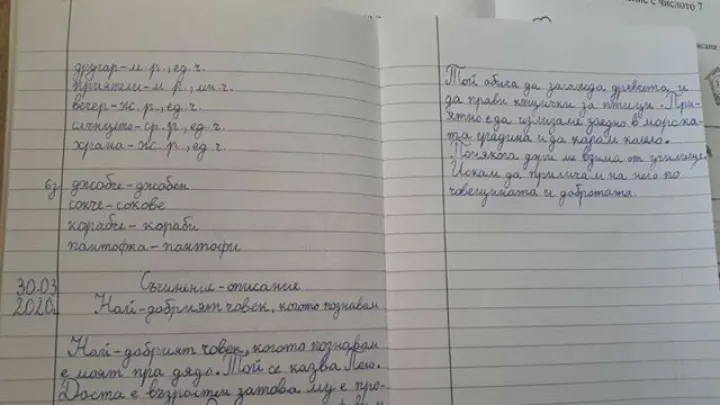 другар-м.р., ед.ч.
приятели-м.р., мн.ч.
вечер-ж.р., ед.ч.
слънцето-ср.р., ед.ч.
храна-ж.р., ед.ч.
6з джобче-джобен
сокче-сокове
корабче-кораби
пантофка-пантофи
30.03 Съчинение-описание
2020. Най-добрият човек, когото познавам
Най-добрият човек, когото познавам
е моят пра дядо. Той се казва
Доста е възрастен затова му е про-
Той обича да
да прави къщички за птици. При-
ятно е да излизаме заедно в морска-
та градина и да карам колело.
Понякога дори ме взима от училище.
Искам да приличам на него по
човещината и добротата.
ние с числото 7